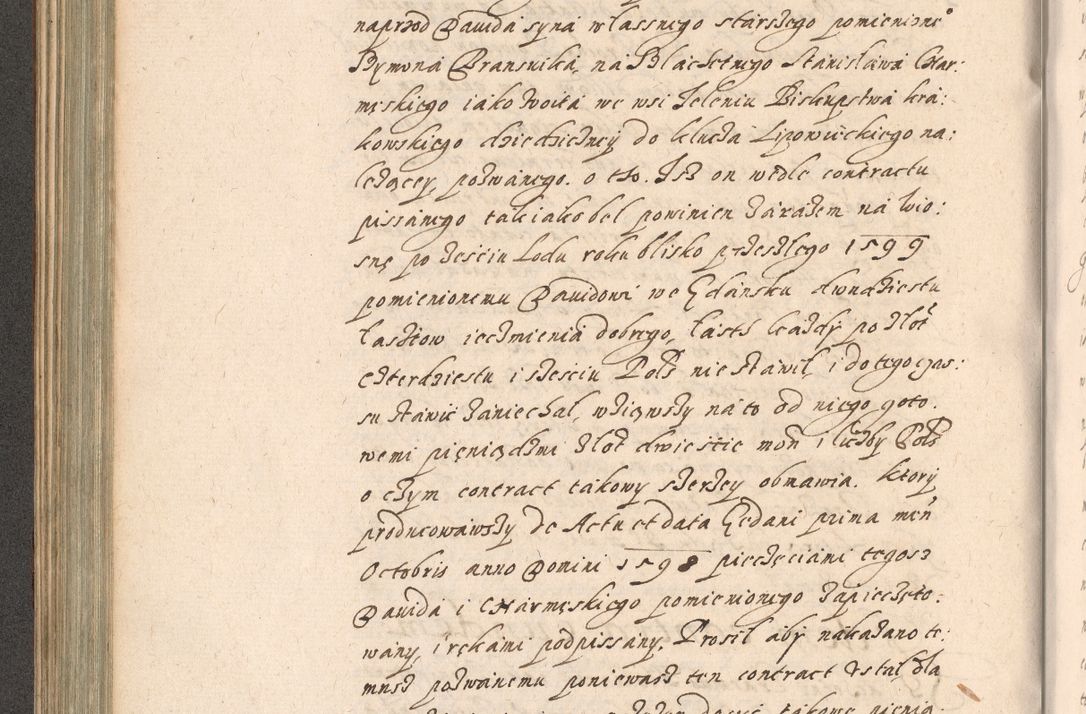 naprzod Dauida syna własnego starszego pomienione°
Symona Bransnika, na Slachetnego Stanisława Char:
męskiego iako woita we wsi Jeleniu Biskupstwa kra:
kowskiego dziedziczney do klucza Lipowieckiego na:
leżącey, pozwanego. o tho. Iż on wedle contractu
pissanego tak iako bel powinien zarazem na wio:
snę po zesciu Lodu roku blisko przeszlego 1599
pomienionemu Dauidowi we Gdansku dwudziestu
lasztow ięczmienia dobrego, laszt każdy po złot
czterdziestu i szesciu Pols nie stawil, i do tego czas:
su stawić zaniechal, wziąwszy na to od niego goto.
wemi pieniądzmi złot dwiescie mon i liczby Pols
o czym contract takowy szerzey obmawia. ktory
producowawszy de Actu et data Gedani prima men
Octobris anno Domini 1598 pieczęciami tegosz
Dauida i Charmęskiego pomienionego zapieczęto:
wany, i rękami podpissany. Prosil aby nakazano te:
musz pozwanemu ponieważ ten contract Vstal dla